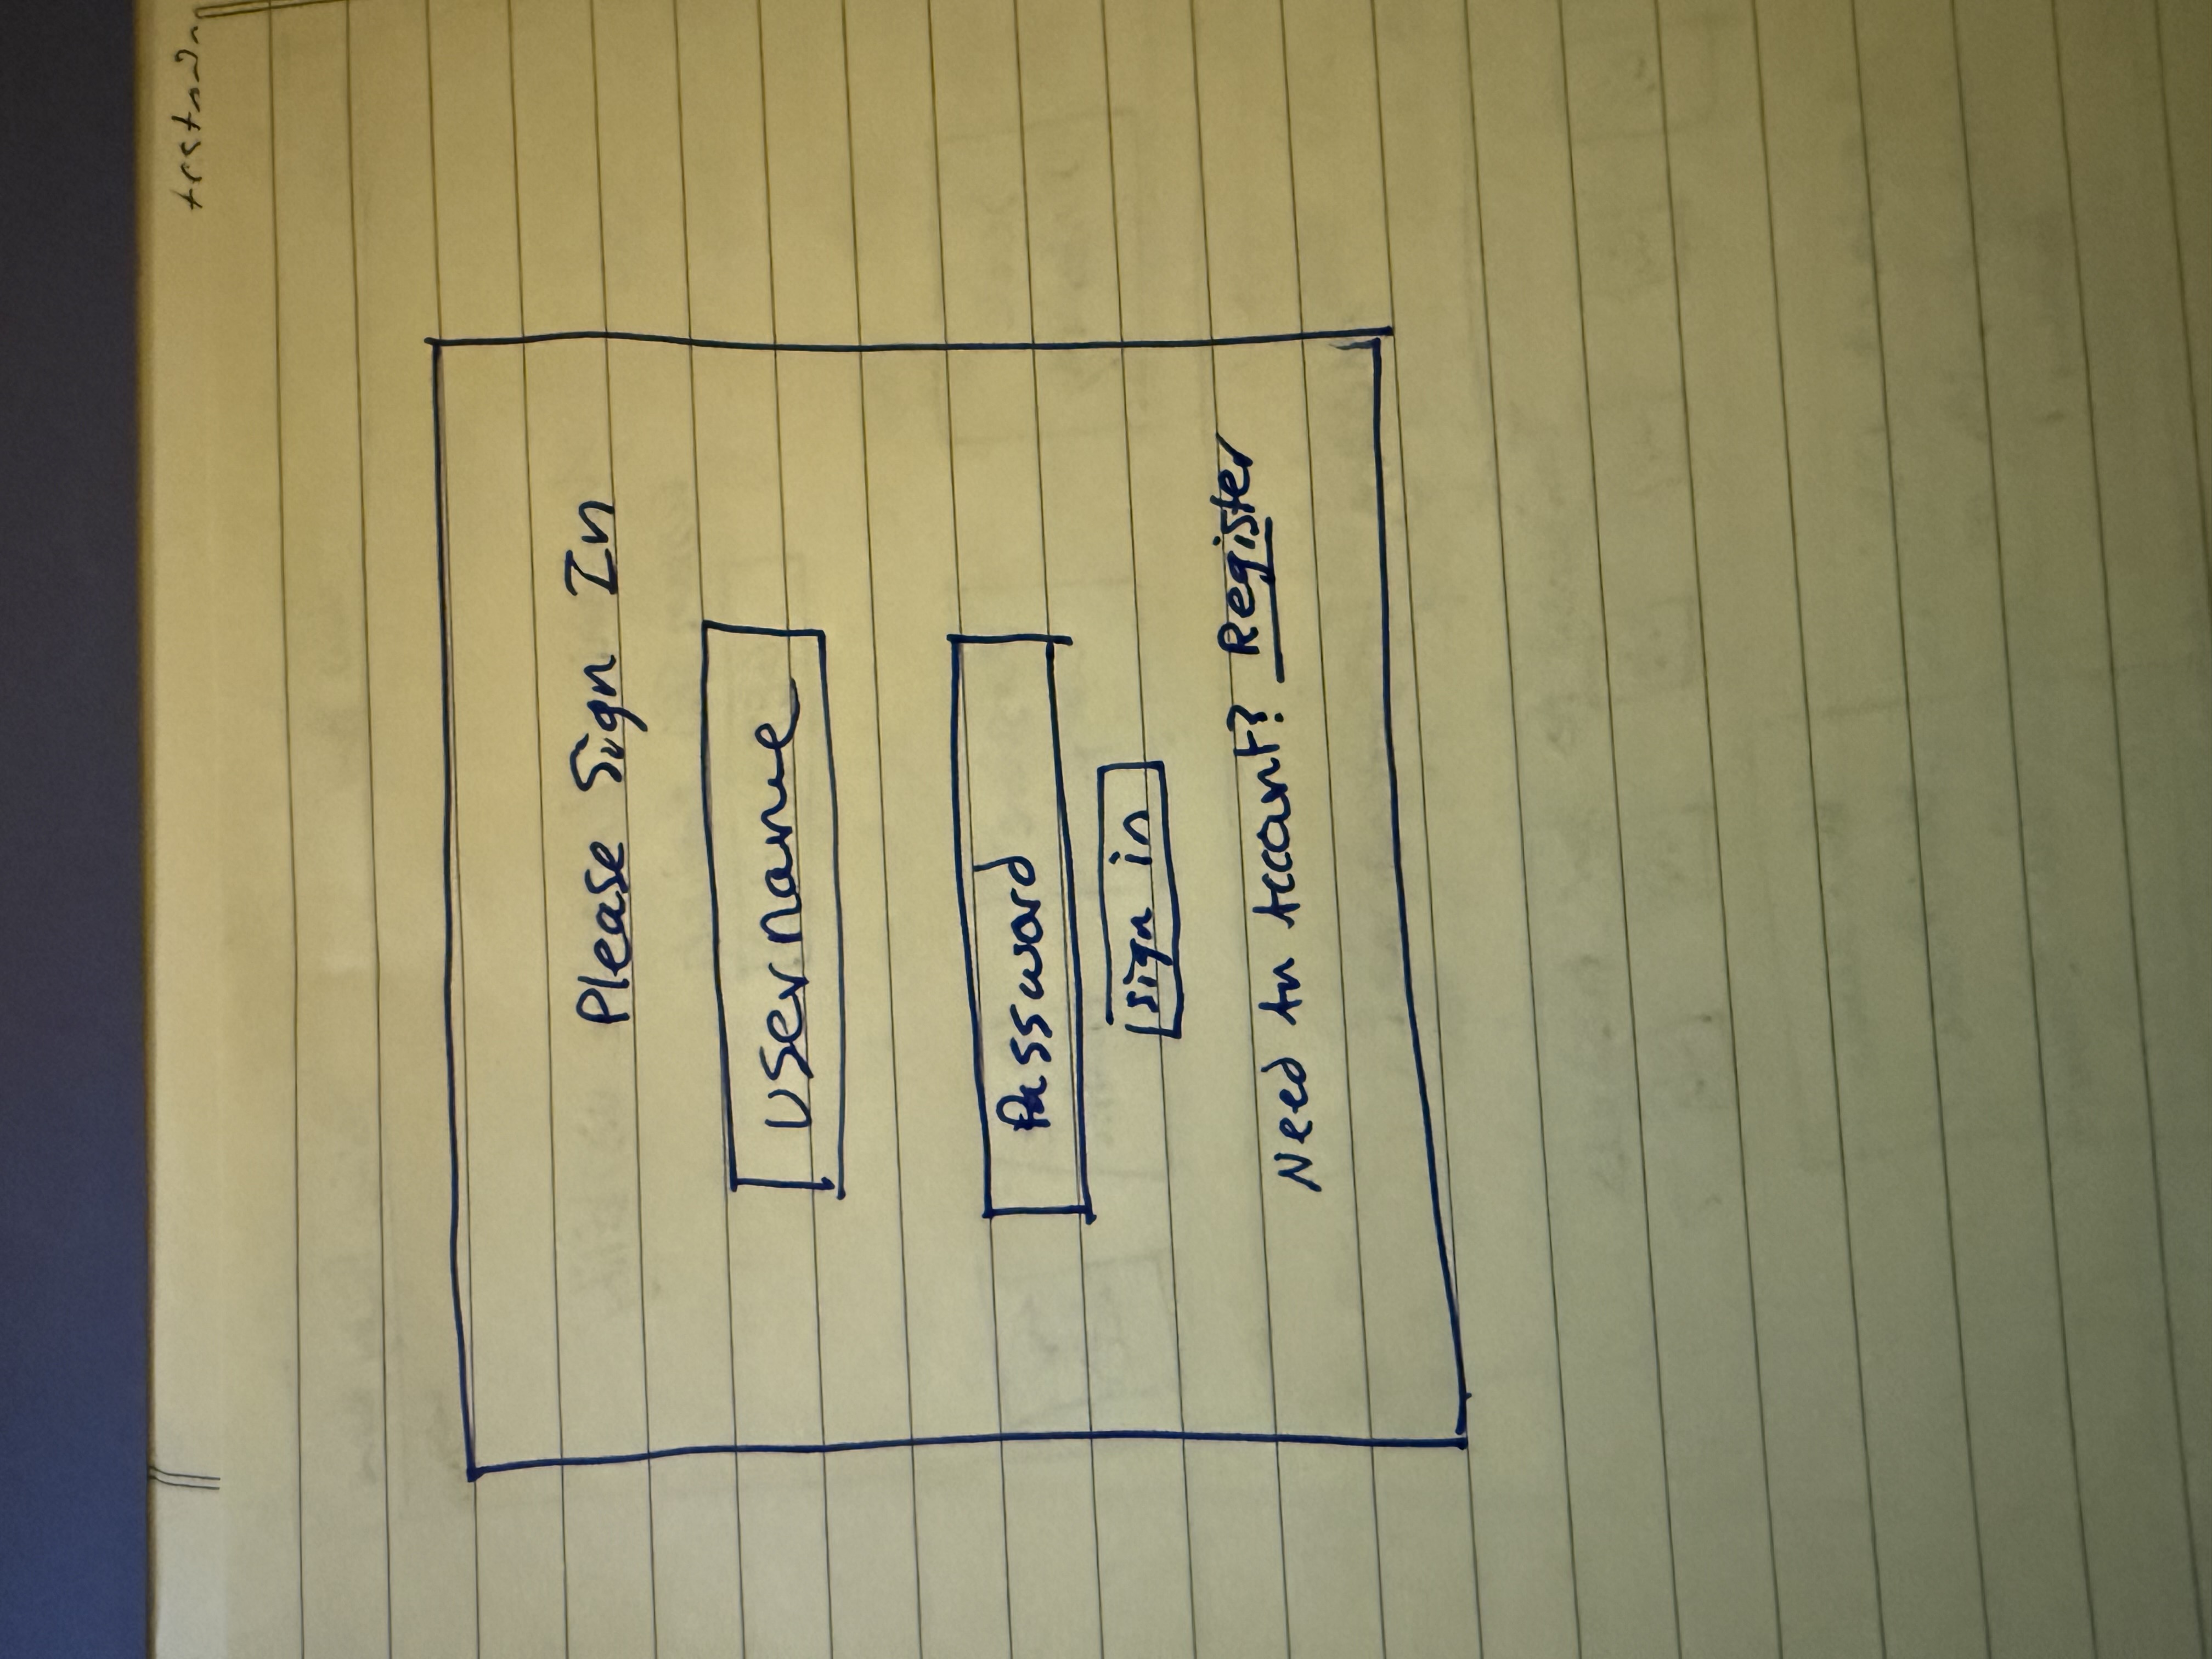 Please Sign In
username
Password
sign in
Need An Account? Register